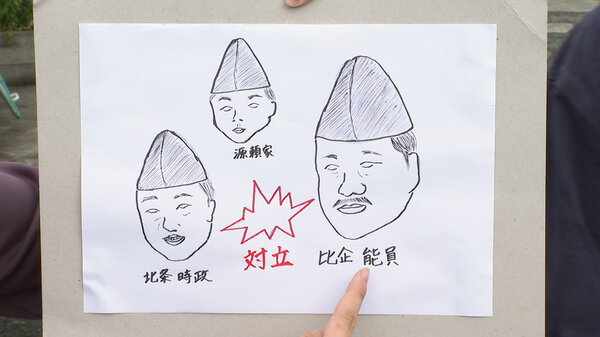 源頼家
北条時政
対立
比企能員